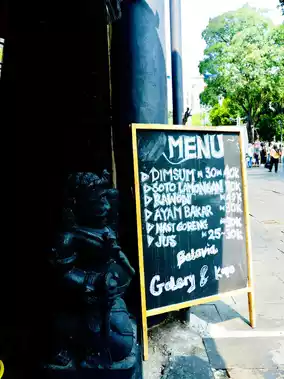 MENU
DIMSUM 30 40K
SOTO LAMONGAN 30K
RAWON 40K
AYAM BAKAR 50K
NASI GORENG 30K
JUS 25-30K
Batavia
Galery & Kopi